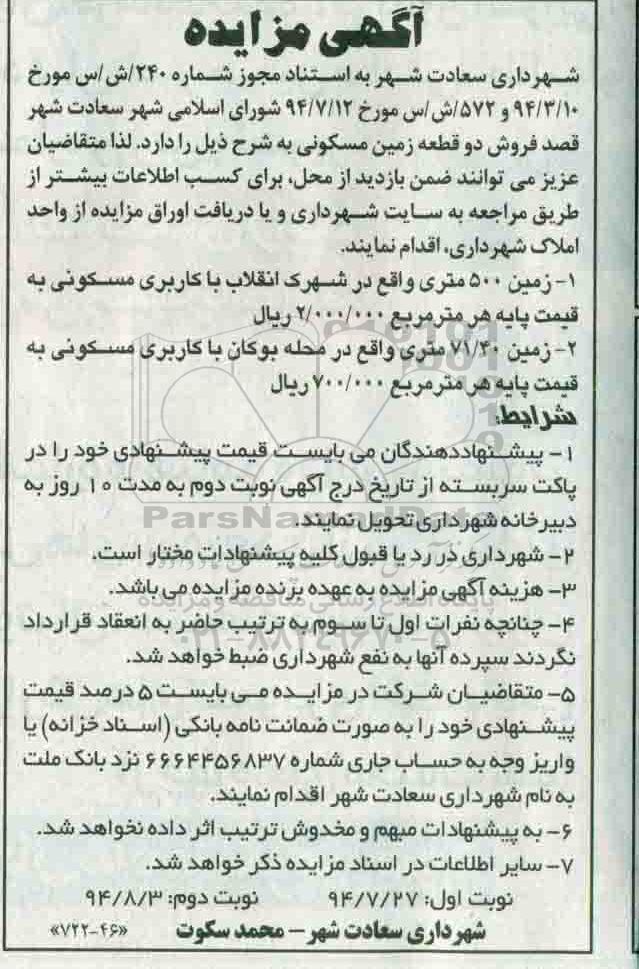 آگهی مزایده
شهرداری سعادت شهر به استناد مجوز شماره ۲۴۰/ش/س مورخ
۹۴/۳/۱۰ و ۵۷۲/ش/س مورخ ۹۴/۷/۱۲ شورای اسلامی شهر سعادت شهر
قصد فروش دو قطعه زمین مسکونی به شرح ذیل را دارد. لذا متقاضیان
عزیز می توانند ضمن بازدید از محل، برای کسب اطلاعات بیشتر از
طریق مراجعه به سایت شهرداری و یا دریافت اوراق مزایده از واحد
املاک شهرداری، اقدام نمایند.
۱- زمین ۵۰۰ متری واقع در شهرک انقلاب با کاربری مسکونی به
قیمت پایه هر مترمربع ۲/۰۰۰/۰۰۰ ریال
۲- زمین ۷۱/۴۰ متری واقع در محله بوکان با کاربری مسکونی به
قیمت پایه هر مترمربع ۷۰۰/۰۰۰ ریال
شرایط:
۱- پیشنهاددهندگان می بایست قیمت پیشنهادی خود را در
پاکت سربسته از تاریخ درج آگهی نوبت دوم به مدت ۱۰ روز به
دبیرخانه شهرداری تحویل نمایند.
ParsNamadData
۲- شهرداری در رد یا قبول کلیه پیشنهادات مختار است.
۳- هزینه آگهی مزایده به عهده برنده مزایده می باشد.
پایگاه اطلاع رسانی مناقصه و مزایده
۴- چنانچه نفرات اول تا سوم به ترتیب حاضر به انعقاد قرارداد
۰۲۱-۸۸۳۴۹۶۷۰-۵
نگردند سپرده آنها به نفع شهرداری ضبط خواهد شد.
۵- متقاضیان شرکت در مزایده می بایست ۵ درصد قیمت
پیشنهادی خود را به صورت ضمانت نامه بانکی (اسناد خزانه) یا
واریز وجه به حساب جاری شماره ۶۶۶۴۴۵۶۸۳۷ نزد بانک ملت
به نام شهرداری سعادت شهر اقدام نمایند.
۶- به پیشنهادات مبهم و مخدوش ترتیب اثر داده نخواهد شد.
۷- سایر اطلاعات در اسناد مزایده ذکر خواهد شد.
نوبت اول: ۹۴/۷/۲۷ نوبت دوم: ۹۴/۸/۳
شهرداری سعادت شهر – محمد سکوت «۷۲۲-۴۶»